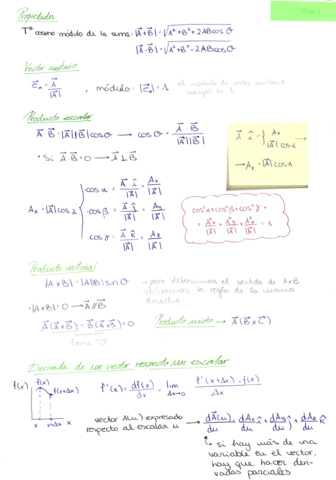 Propiedades
Tª coseno módulo de la suma |A⃗+B⃗| = √A²+B²+2ABcosθ
|A⃗-B⃗| = √A²+B²-2ABcosθ
Vector unitario
= A⃗/|A⃗| , módulo: = 1 el módulo de vector unitario siempre es 1
Producto escalar
A⃗·B⃗ = |A⃗||B⃗|cosθ → cosθ = A⃗·B⃗/|A⃗||B⃗|
• Si A⃗·B⃗ = 0 → A⃗⊥B⃗
A⃗ · i⃗ = { Ax
|A⃗| cosα
→ Ax = |A⃗| cosα
Ax = |A⃗| cosα { cosα = A⃗·i⃗/|A⃗| = Ax/|A⃗|
cosβ = A⃗·j⃗/|A⃗| = Ay/|A⃗|
cosγ = A⃗·k⃗/|A⃗| = Az/|A⃗|
cos²α + cos²β + cos²γ =
= 1
Producto vectorial
|A×B| = |A||B| sinθ → para determinar el sentido de A×B
utilizamos la regla de la mano
derecha
• |A×B| = 0 → A⃗∥B⃗
A⃗(A⃗×B⃗) = B⃗(A⃗×B⃗) = 0
Producto mixto → A⃗(B⃗×C⃗)
Derivada de un vector respecto un escalar
f(x) f(x) f(x+Δx) x x+Δx x
f'(x) = df(x)/dx = lim Δx→0 f(x+Δx)-f(x)/Δx
vector A(u) expresado
respecto al escalar u → dA⃗(u)/du = dAx/du i⃗ + dAy/du j⃗ + dAz/du k⃗
↳ si hay más de una
variable en el vector,
hay que hacer deri-
vadas parciales